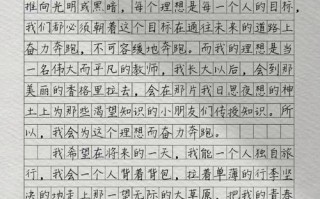 推向光明或黑暗，每个理想是每一个人的目标，
我们都必须朝着这个目标在通往未来的道路上
奋力奔跑，不可容缓地奔跑。而我的理想是当
一名伟大而平凡的教师，我长大以后，会到那
美丽的香格里拉去，会在那片我日思夜想的神
土上为那些渴望知识的小朋友们传授知识。所
以，我会为这个理想而奋力奔跑。
我希望在将来的一天，我能一个人独自旅
行，我会一个人背着背包，拉着单薄的行李坚
决的地走上那一望无际的大草原，把我的青春